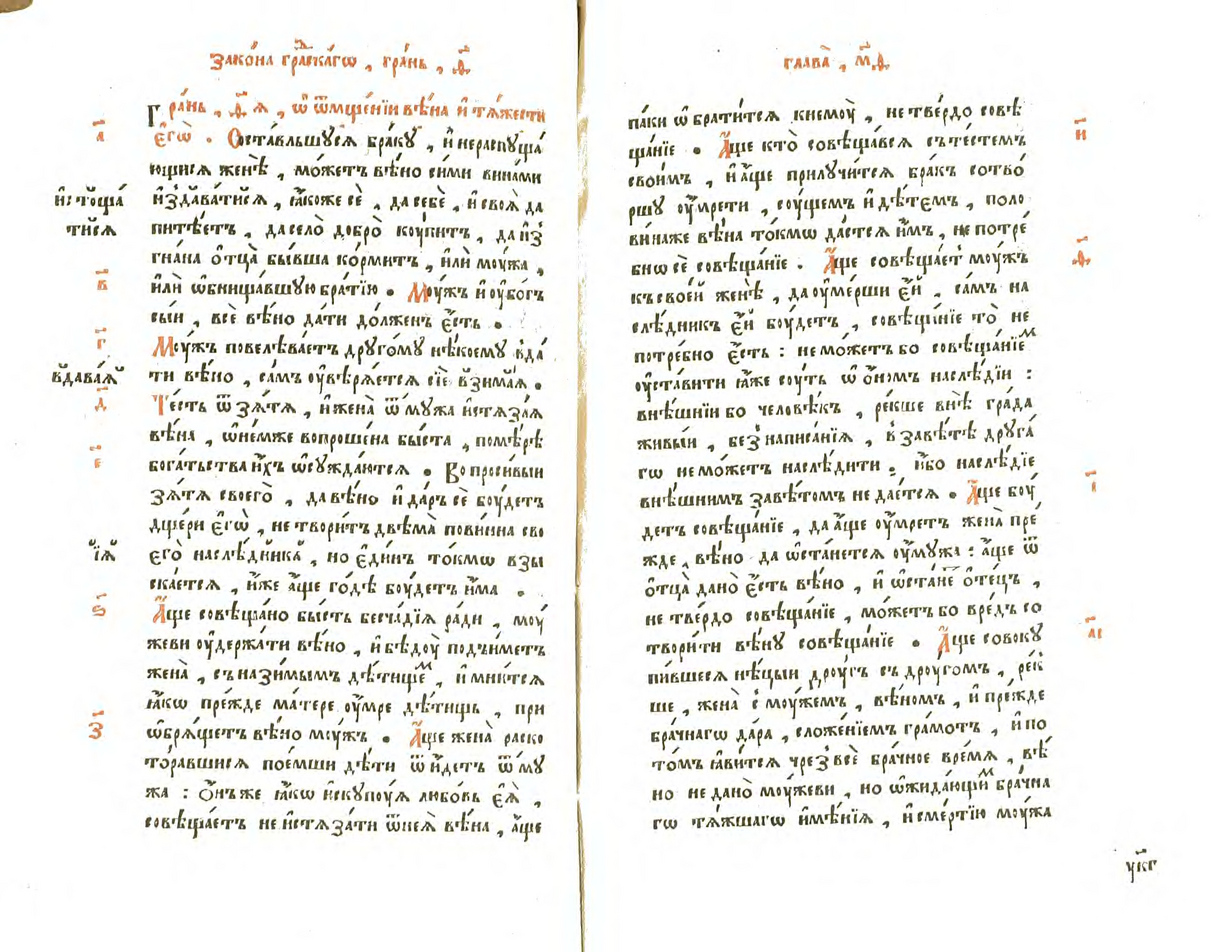 Зако́на гра́дскагѡ , гра́нь , ѳ҃
Гра́нь , ѳ҃ я , ѡ҆ ѿмще́нїи вѣ́на и҆ тѧ́жести
є҆гѡ̀ . Ѡста́вльшуся бра́ку , и҆ нераспуща́
а҃
ющися женѣ̀ , мо́жетъ вѣ́но си́ми вина́ми
и҆стоща́
тися
и҆здава́тися , ꙗ҆́коже сѐ , да себѐ , и҆ своѧ̀ да
пита́етъ , да село̀ добро̀ коу́питъ , да и҆з̾
гна́на ѻ҆тца̀ бы́вша ко́рмитъ , и҆лѝ моу́жа ,
в҃
и҆лѝ ѡ҆бнища́вшую бра́тїю . Моу́жъ и҆ оу҆бо́гъ
сы́и , всѐ вѣ́но да́ти до́лженъ є҆́сть .
г҃
Моу́жъ повелѣва́етъ друго́му нѣ́коему вда́
вдава́ѧй
ти вѣ́но , са́мъ оу҆вѣрѧ́ется сїѐ взима́ѧ .
д҃
Те́сть ѿ зѧ́тѧ , и҆ жена̀ ѿ му́жа и҆стѧза́ѧ
вѣ́на , ѡ҆ не́мже вопроше́на бы́ста , по мѣ́рѣ
е҃
бога́тьства и҆́хъ ѡ҆сужда́ются . Вопроси́выи
зѧ́тѧ своего̀ , да вѣ́но и҆ да́ръ сѐ боу́детъ
дще́ри є҆гѡ̀ , не твори́тъ двѣма̀ пови́нна сво
їѧ̀
его̀ наслѣ́дника , но є҆ди́нъ то́кмѡ взы́
ска́ется , и҆́же а҆́ще го́дѣ боу́детъ и҆́ма .
ѕ҃
А҆́ще совѣща́но бы́сть бесча́дїѧ ра́ди , моу́
жеви оу҆держа́ти вѣ́но , и҆ бѣ́доу подъи́метъ
жена̀ , съ на́зимымъ дѣ́тищем , и҆ мни́тся
ꙗ҆́кѡ пре́жде ма́тере оу҆́мре дѣ́тищь , при
з҃
ѡ҆брѧ́щетъ вѣ́но моу́жъ . А҆́ще жена̀ раско
тора́вшися пое́мши дѣ́ти ѿи́детъ ѿ му́
жа : ѻ҆́нъ же ꙗ҆́кѡ и҆скупоу́ѧ любо́вь є҆ѧ̀ ,
совѣща́етъ не и҆стѧза́ти ѿ неѧ̀ вѣ́на , а҆́ще
глава̀ , м҃ѳ
па́ки ѡ҆брати́тся к немоу̀ , не тве́рдо совѣ
и҃
ща́нїе . А҆́ще кто̀ совѣща́вся съ те́стемъ
свои́мъ , и҆ а҆́ще прилучи́тся бра́къ сотво́
ршу оу҆мре́ти , соу́щемъ и҆ дѣ́темъ , поло
ви́на же вѣ́на то́кмѡ да́стся и҆̀мъ , не потре́
ѳ҃
бнѡ сѐ совѣща́нїе . А҆́ще совѣща́ет моу́жъ
къ свое́й женѣ̀ , да оу҆ме́рши є҆́й , са́мъ на
слѣ́дникъ є҆́й боу́детъ , совѣща́нїе то̀ не
потре́бно є҆́сть : не мо́жетъ бо совѣща́нїем
оу҆ста́вити ꙗ҆́же соу́ть ѡ҆ ѻ҆́номъ наслѣ́дїи :
внѣ́шнїи бо человѣ́къ , ре́кше внѣ̀ гра́да
живы́и , без̾ написа́нїѧ , в завѣ́тѣ друга́
гѡ не мо́жетъ наслѣ́дити . и҆́бо наслѣ́дїе
і҃
внѣ́шнимъ завѣ́томъ не да́стся . А҆́ще боу́
детъ совѣща́нїе , да а҆́ще оу҆́мретъ жена̀ пре́
жде , вѣ́но да ѡ҆ста́нется оу҆ му́жа : а҆́ще ѿ
ѻ҆тца̀ дано̀ є҆́сть вѣ́но , и҆ ѡ҆ста́не ѻ҆те́цъ ,
не тве́рдо совѣща́нїе , мо́жетъ бо вре́дъ со
а҃і
твори́ти вѣ́ну совѣща́нїе . А҆́ще совоку́
пившеся нѣ́цыи дроу́гъ съ дроу́гомъ , ре́к
ше , жена̀ с моу́жемъ , вѣ́номъ , и҆ пре́жде
бра́чнагѡ да́ра , сложе́нїемъ гра́мотъ , и҆ по
то́мъ ꙗ҆ви́тся чрез̾ всѐ бра́чное вре́мѧ , вѣ́
но не дано̀ моу́жеви , но ѡ҆жида́ющим бра́чна
гѡ тѧ́жшагѡ и҆мѣ́нїѧ , и҆ сме́ртїю моу́жа
укг